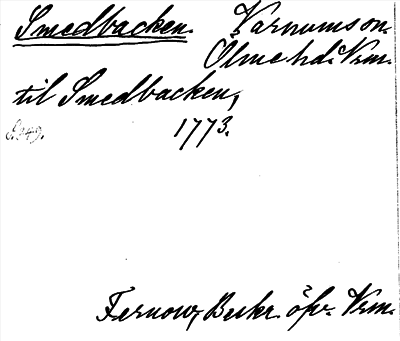 Smedbacken. Varnums sn.
Ölme hd. Vrm.
til Smedbacken,
S. 349. 1773.
Fernow, Beskr. öfv. Vrm.